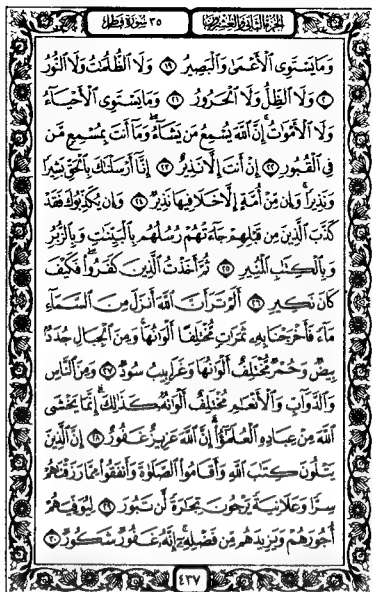 الجزء الثاني والعشرون
٣٥ سورة فاطر
وَمَا يَسْتَوِى ٱلْأَعْمَىٰ وَٱلْبَصِيرُ ١٩ وَلَا ٱلظُّلُمَٰتُ وَلَا ٱلنُّورُ
٢٠ وَلَا ٱلظِّلُّ وَلَا ٱلْحَرُورُ ٢١ وَمَا يَسْتَوِى ٱلْأَحْيَآءُ
وَلَا ٱلْأَمْوَٰتُ إِنَّ ٱللَّهَ يُسْمِعُ مَن يَشَآءُ وَمَآ أَنتَ بِمُسْمِعٍ مَّن
فِى ٱلْقُبُورِ ٢٢ إِنْ أَنتَ إِلَّا نَذِيرٌ ٢٣ إِنَّآ أَرْسَلْنَٰكَ بِٱلْحَقِّ بَشِيرًا
وَنَذِيرًا وَإِن مِّنْ أُمَّةٍ إِلَّا خَلَا فِيهَا نَذِيرٌ ٢٤ وَإِن يُكَذِّبُوكَ فَقَدْ
كَذَّبَ ٱلَّذِينَ مِن قَبْلِهِمْ جَآءَتْهُمْ رُسُلُهُم بِٱلْبَيِّنَٰتِ وَبِٱلزُّبُرِ
وَبِٱلْكِتَٰبِ ٱلْمُنِيرِ ٢٥ ثُمَّ أَخَذْتُ ٱلَّذِينَ كَفَرُوا۟ فَكَيْفَ
كَانَ نَكِيرِ ٢٦ أَلَمْ تَرَ أَنَّ ٱللَّهَ أَنزَلَ مِنَ ٱلسَّمَآءِ
مَآءً فَأَخْرَجْنَا بِهِۦ ثَمَرَٰتٍ مُّخْتَلِفًا أَلْوَٰنُهَا وَمِنَ ٱلْجِبَالِ جُدَدٌۢ
بِيضٌ وَحُمْرٌ مُّخْتَلِفٌ أَلْوَٰنُهَا وَغَرَابِيبُ سُودٌ ٢٧ وَمِنَ ٱلنَّاسِ
وَٱلدَّوَآبِّ وَٱلْأَنْعَٰمِ مُخْتَلِفٌ أَلْوَٰنُهُۥ كَذَٰلِكَ إِنَّمَا يَخْشَى
ٱللَّهَ مِنْ عِبَادِهِ ٱلْعُلَمَٰٓؤُا۟ إِنَّ ٱللَّهَ عَزِيزٌ غَفُورٌ ٢٨ إِنَّ ٱلَّذِينَ
يَتْلُونَ كِتَٰبَ ٱللَّهِ وَأَقَامُوا۟ ٱلصَّلَوٰةَ وَأَنفَقُوا۟ مِمَّا رَزَقْنَٰهُمْ
سِرًّا وَعَلَانِيَةً يَرْجُونَ تِجَٰرَةً لَّن تَبُورَ ٢٩ لِيُوَفِّيَهُمْ
أُجُورَهُمْ وَيَزِيدَهُم مِّن فَضْلِهِۦٓ إِنَّهُۥ غَفُورٌ شَكُورٌ ٣٠
٤٣٧